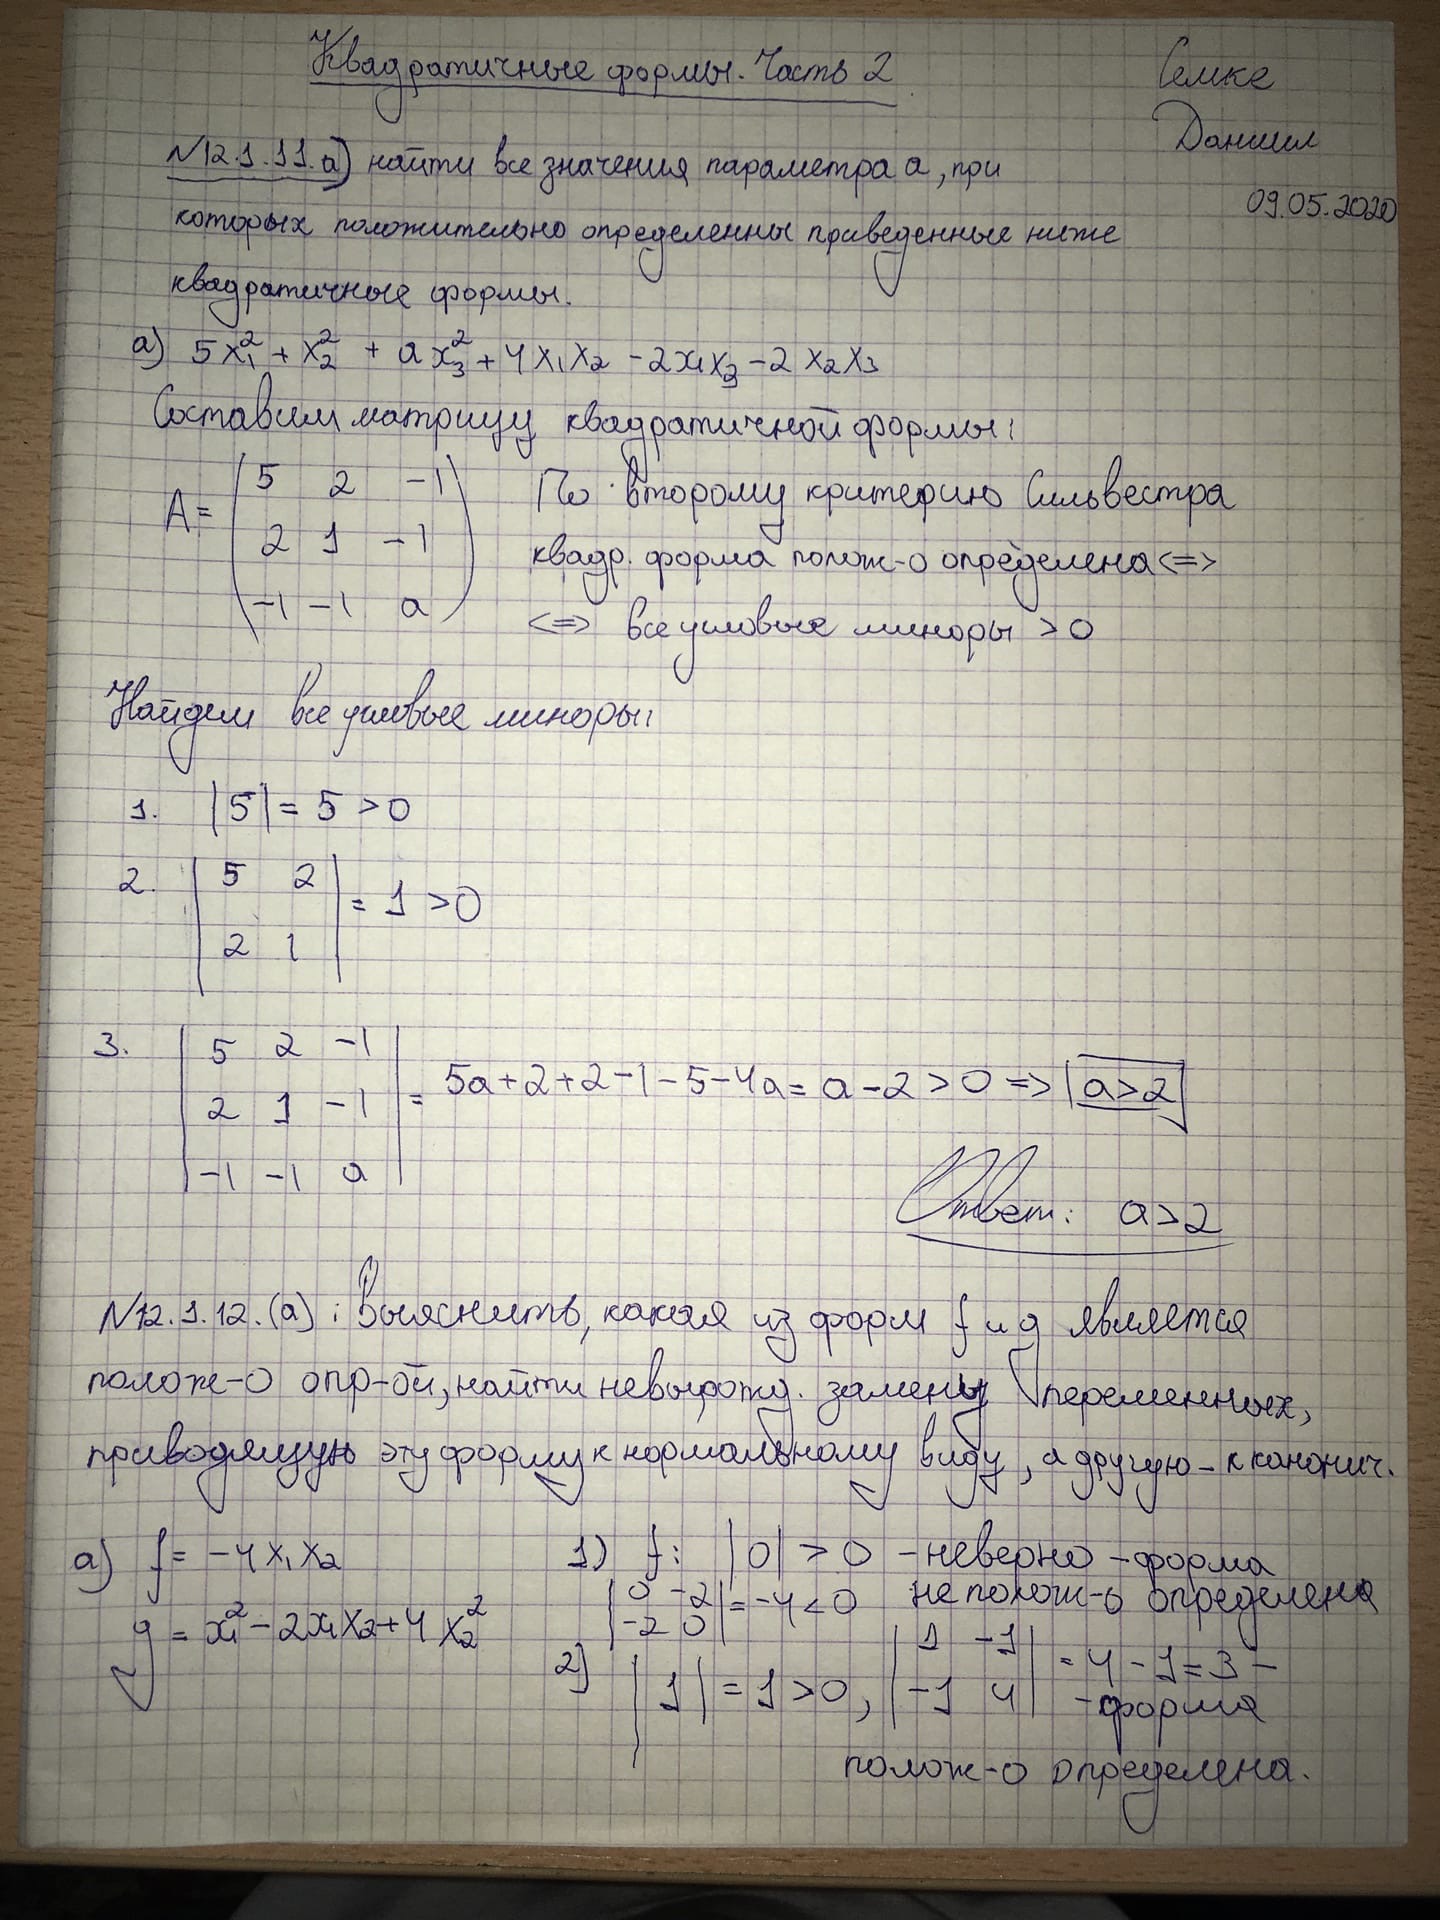 Квадратичные формы. Часть 2
Семке
Даниил
09.05.2020
№12.1.11.а) найти все значения параметра а, при
которых положительно определенны приведенные ниже
квадратичные формы.
а) 5x₁² + x₂² + ax₃² + 4x₁x₂ - 2x₁x₃ - 2x₂x₃
Составим матрицу квадратичной формы:
A = ( 5 2 -1
2 1 -1
-1 -1 a )
По второму критерию Сильвестра
квадр. форма полож-о определена <=>
<=> все угловые миноры > 0
Найдем все угловые миноры:
1. |5| = 5 > 0
2. | 5 2
2 1 | = 1 > 0
3. | 5 2 -1
2 1 -1
-1 -1 a | = 5a+2+2-1-5-4a = a-2 > 0 => a>2
Ответ: a>2
№12.1.12.(а): Выяснить, какая из форм f и g является
полож-о опр-ой, найти невырожд. замены переменных,
приводящую эту форму к нормальному виду, а другую - к канонич.
а) f = -4x₁x₂
g = x₁² - 2x₁x₂ + 4x₂²
1) f: |0| > 0 - неверно - форма
| 0 -2
-2 0 | = -4 < 0 не полож-о определена
2) |1| = 1 > 0, | 1 -1
-1 4 | = 4 - 1 = 3 -
- форма
полож-о определена.